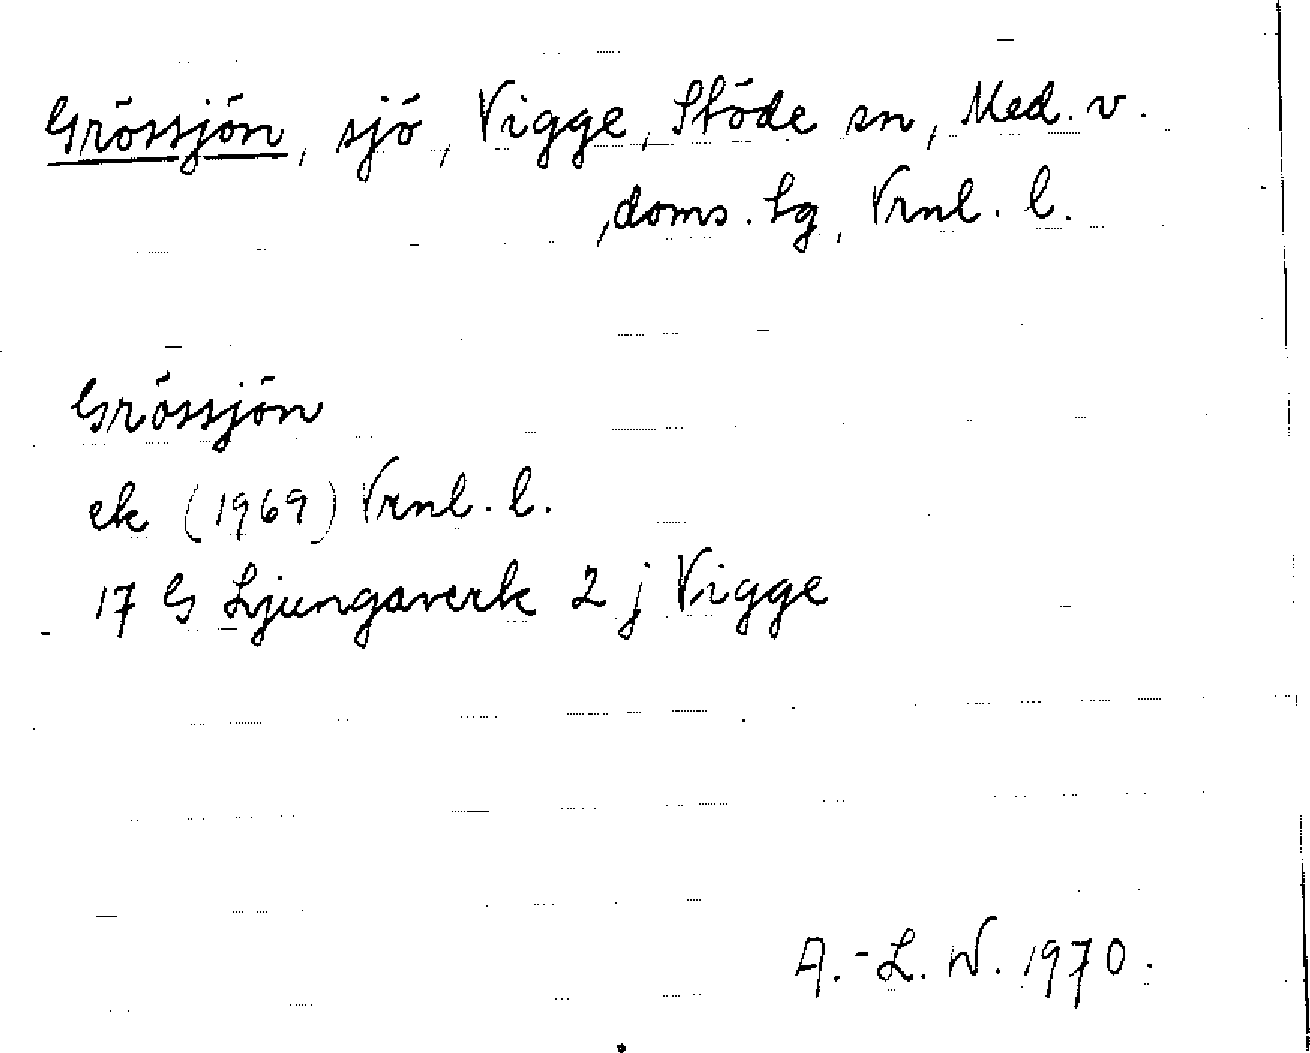 Grössjön, sjö, Vigge, Stöde sn, Med. v.
doms. lg, Vrnl. l.
Grössjön
ek (1969) Vrnl. l.
17 G Ljungaverk 2 j Vigge
A.-L. W. 1970.